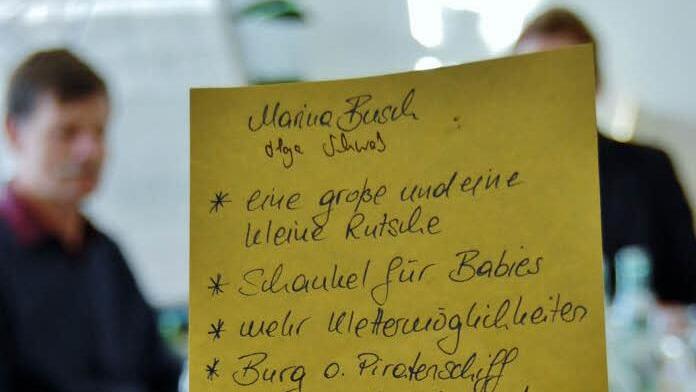 Marina Busch
Olga Schwab
* eine große und eine
kleine Rutsche
* Schaukel für Babies
* mehr Klettermöglichkeiten
* Burg o. Piratenschiff